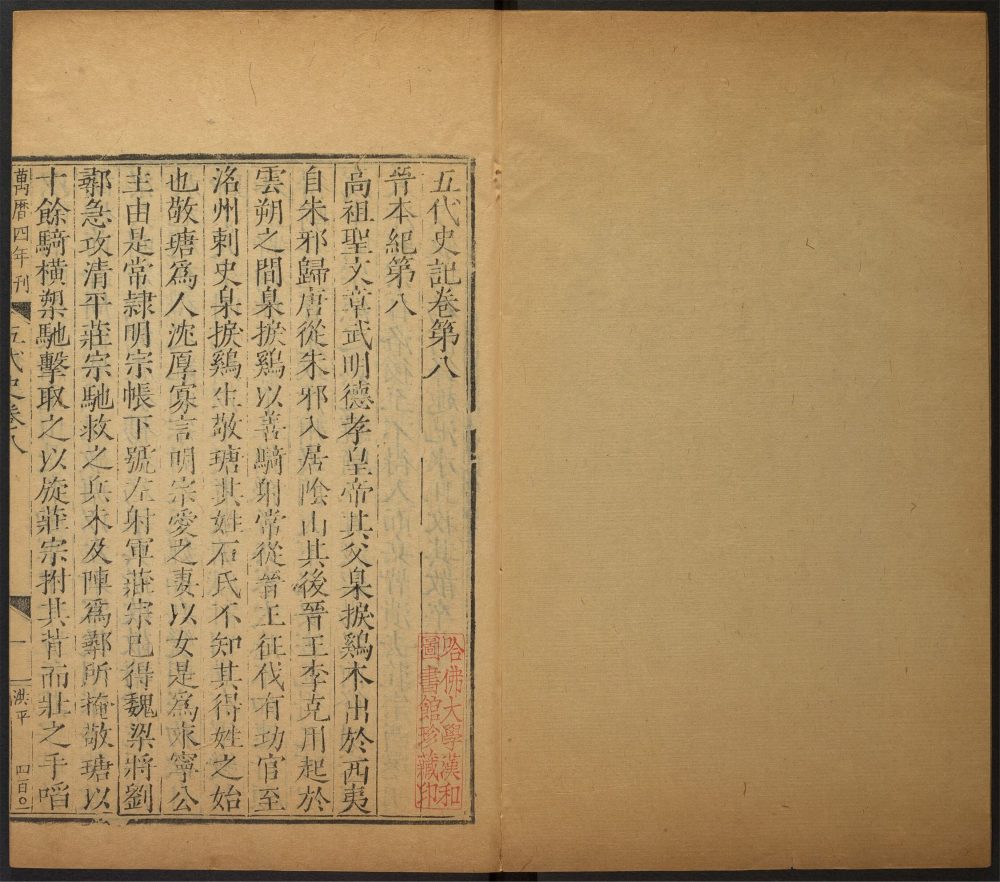 五代史記卷第八
晉本紀第八
高祖聖文章武明德孝皇帝其父臬捩鷄本出於西夷
自朱邪歸唐從朱邪入居陰山其後晉王李克用起於
雲朔之間臬捩鷄以善騎射常從晉王征伐有功官至
洺州刺史臬捩鷄生敬瑭其姓石氏不知其得姓之始
也敬瑭爲人沈厚寡言明宗愛之妻以女是爲永寧公
主由是常隸明宗帳下號左射軍莊宗已得魏梁將劉
鄩急攻清平莊宗馳救之兵未及陣爲鄩所掩敬瑭以
十餘騎橫槊馳擊取之以旋莊宗拊其背而壯之手啗
萬曆四年刊
五代史卷八
一
洪平
四百〇
哈佛大學漢和
圖書館珍藏印